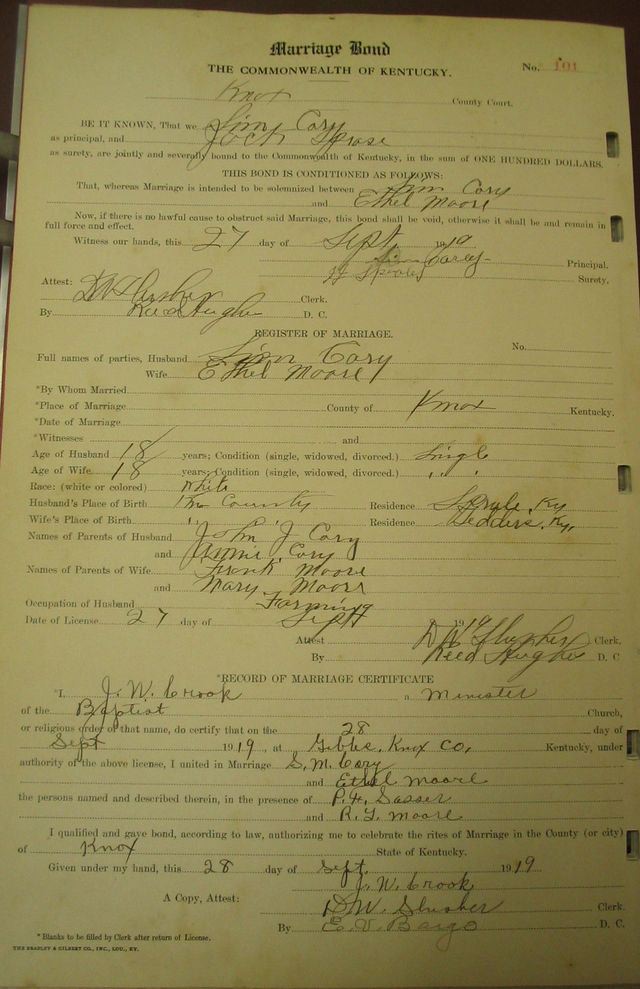 Marriage Bond
THE COMMONWEALTH OF KENTUCKY.
No. 101
Knox County Court.
BE IT KNOWN, That we Sim Cory
as principal, and Jack
as surety, are jointly and severally bound to the Commonwealth of Kentucky, in the sum of ONE HUNDRED DOLLARS.
THIS BOND IS CONDITIONED AS FOLLOWS:
That, whereas Marriage is intended to be solemnized between Sim Cory
and Ethel Moore
Now, if there is no lawful cause to obstruct said Marriage, this bond shall be void, otherwise it shall be and remain in
full force and effect.
Witness our hands, this 27 day of Sept. 1919
Sim Corey Principal.
Surety.
Attest: D W Slusher Clerk.
By Reed Hughes D. C.
REGISTER OF MARRIAGE.
No.
Full names of parties, Husband Simon Cory
Wife Ethel Moore
*By Whom Married
*Place of Marriage County of Knox Kentucky.
*Date of Marriage
*Witnesses and
Age of Husband 18 years; Condition (single, widowed, divorced.) Single
Age of Wife 18 years; Condition (single, widowed, divorced.) " "
Race: (white or colored) White
Husband's Place of Birth Kn County Residence Ky
Wife's Place of Birth " " Residence Ky,
Names of Parents of Husband John J Cory
and Annie Cory
Names of Parents of Wife Frank Moore
and Mary Moore
Occupation of Husband Farming
Date of License 27 day of Sept 1919
Attest D W Slusher Clerk.
By Reed Hughes D. C
*RECORD OF MARRIAGE CERTIFICATE
*I, J. W. Crook a Minister
of the Baptist Church,
or religious order of that name, do certify that on the 28 day of
Sept 1919, at Gibbs, Knox Co, Kentucky, under
authority of the above license, I united in Marriage S. M. Cory
and Ethel Moore
the persons named and described therein, in the presence of P. H. Sasser
and R. L. Moore
I qualified and gave bond, according to law, authorizing me to celebrate the rites of Marriage in the County (or city)
of Knox State of Kentucky.
Given under my hand, this 28 day of Sept. 1919
J. W. Crook
A Copy, Attest: D. W. Slusher Clerk.
By E. V. Bargo D. C.
*Blanks to be filled by Clerk after return of License.
THE BRADLEY & GILBERT CO., INC., LOU., KY.